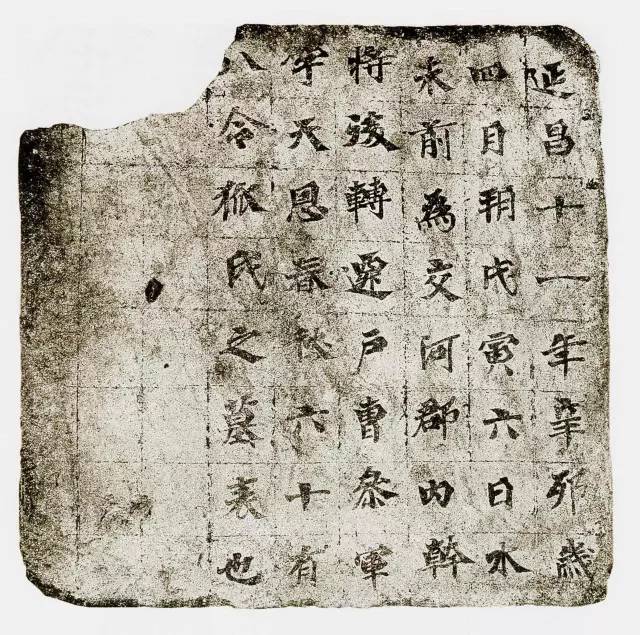 延昌十一年辛卯歲
四月朔戊寅六日癸
未前為交河郡內幹
將後轉遷戶曹參軍
字天恩春秋六十有
八令狐氏之墓表也